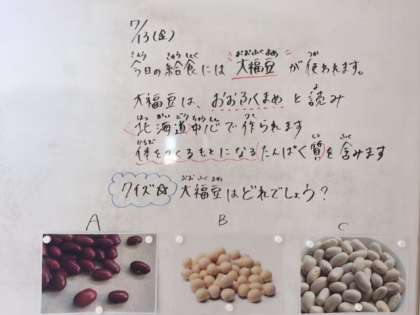 7/13(金)
今日の給食には 大福豆 が使われます。
大福豆は、おおふくまめ と読み
北海道中心で作られます
体をつくるもとになるたんぱく質を含みます
クイズ 大福豆はどれでしょう？
A B C